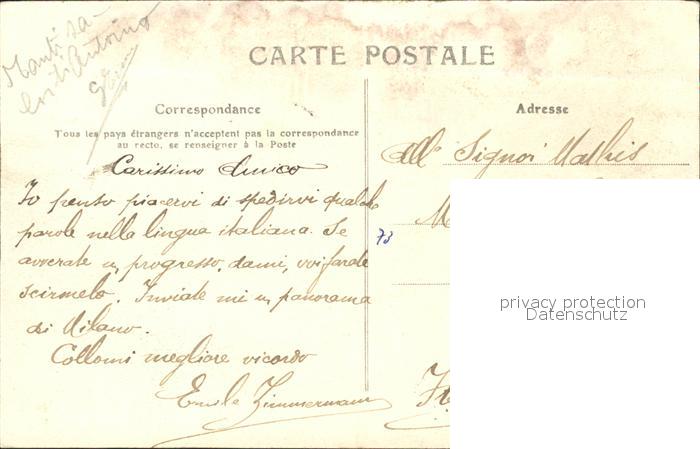 CARTE POSTALE
Correspondance
Tous les pays étrangers n'acceptent pas la correspondance
au recto, se renseigner à la Poste
Carissimo Amico
Io penso piacervi di spedirvi qualche
parole nella lingua italiana. Se
progresso, voi farete
Inviate mi un panorama
di Milano.
Collomi megliore ricordo
Emile Zimmermann
Adresse
All' Signor Mathis
M
73
privacy protection
Datenschutz